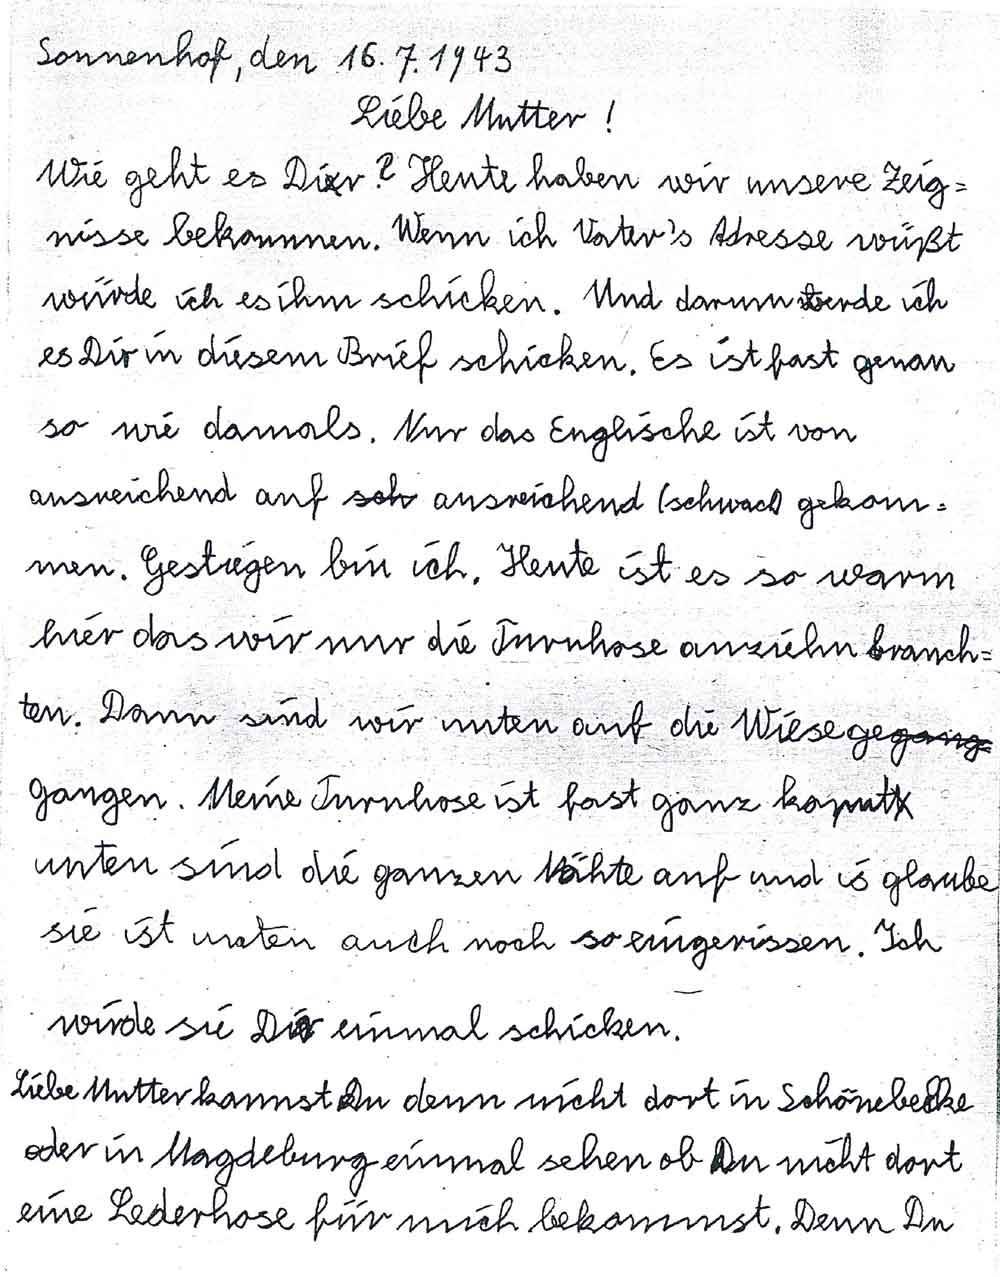 Sonnenhof, den 16.7.1943
Liebe Mutter!
Wie geht es Dir? Heute haben wir unsere Zeig=
nisse bekommen. Wenn ich Vater's Adresse wüßt
würde ich es ihm schicken. Und darum werde ich
es Dir in diesem Brief schicken. Es ist fast genau
so wie damals. Nur das Englische ist von
ausreichend auf sch ausreichend (schwach) gekom=
men. Gestiegen bin ich. Heute ist es so warm
hier das wir nur die Turnhose anziehn brauch=
ten. Dann sind wir unten auf die Wiese gegang=
gangen. Meine Turnhose ist fast ganz kaputt
unten sind die ganzen Nähte auf und is glaube
sie ist unten auch noch so eingerissen. Ich
würde sie Dir einmal schicken.
Liebe Mutter kannst Du denn nicht dort in Schönebecke
oder in Magdeburg einmal sehen ob Du nicht dort
eine Lederhose für mich bekommst. Denn Du